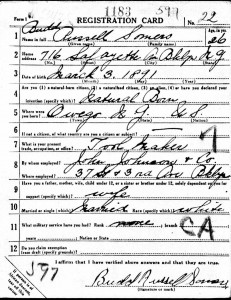 1183
Form 1
REGISTRATION CARD
No. 22
1 Name in full Russell Somers Age, in yrs. 26
(Given name) (Family name)
2 Home address 716 Lafayette Bklyn N.Y.
3 Date of birth March 3, 1891
(Month) (Day) (Year)
4 Are you (1) a natural-born citizen, (2) a naturalized citizen, (3) an alien, (4) or have you declared your intention (specify which)? Natural Born
5 Where were you born? Owego N.Y. U.S.
(Town) (State) (Nation)
6 If not a citizen, of what country are you a citizen or subject?
7 What is your present trade, occupation, or office? Tool Maker 7
8 By whom employed? John Johnson & Co.
Where employed? 37 St & 3rd Av Bklyn
9 Have you a father, mother, wife, child under 12, or a sister or brother under 12, solely dependent on you for support (specify which)? wife
10 Married or single (which)? Married Race (specify which)? white
11 What military service have you had? Rank none; branch
years Nation or State
CA
12 Do you claim exemption from draft (specify grounds)?
I affirm that I have verified above answers and that they are true.
597
(Signature or mark)